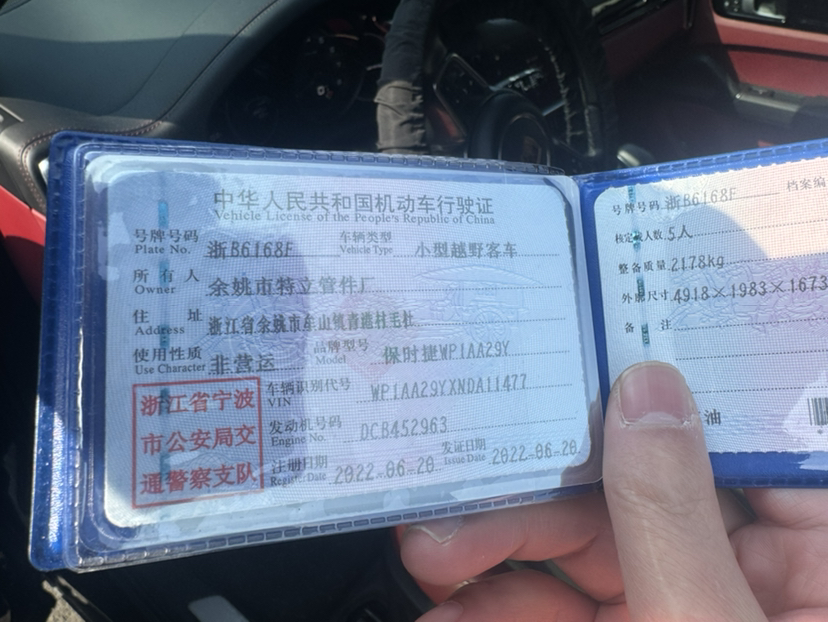 中华人民共和国机动车行驶证
Vehicle License of the People's Republic of China
号牌号码 浙B6168F 车辆类型 小型越野客车
Plate No. Vehicle Type
所有人 余姚市特立管件厂
Owner
住址 浙江省余姚市牟山镇青港村毛杜
Address
使用性质 非营运 品牌型号 保时捷WP1AA29Y
Use Character Model
车辆识别代号 WP1AA29YXNDA11477
VIN
发动机号码 DCB452963
Engine No.
注册日期 2022-06-20 发证日期 2022-06-20
Register Date Issue Date
浙江省宁波
市公安局交
通警察支队
号牌号码 浙B6168F 档案编
核定载人数 5人
整备质量 2178kg
外廓尺寸 4918×1983×1673
备注
油